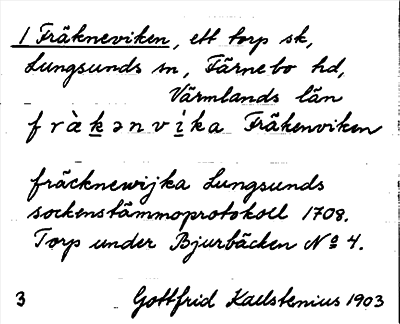 1 Fräkneviken, ett torp sk,
Lungsunds sn, Färnebo hd,
Värmlands län
fràkənvíka Fräkenviken
fräcknewijka Lungsunds
sockenstämmoprotokoll 1708.
Torp under Bjurbäcken No 4.
3 Gottfrid Kallstenius 1903